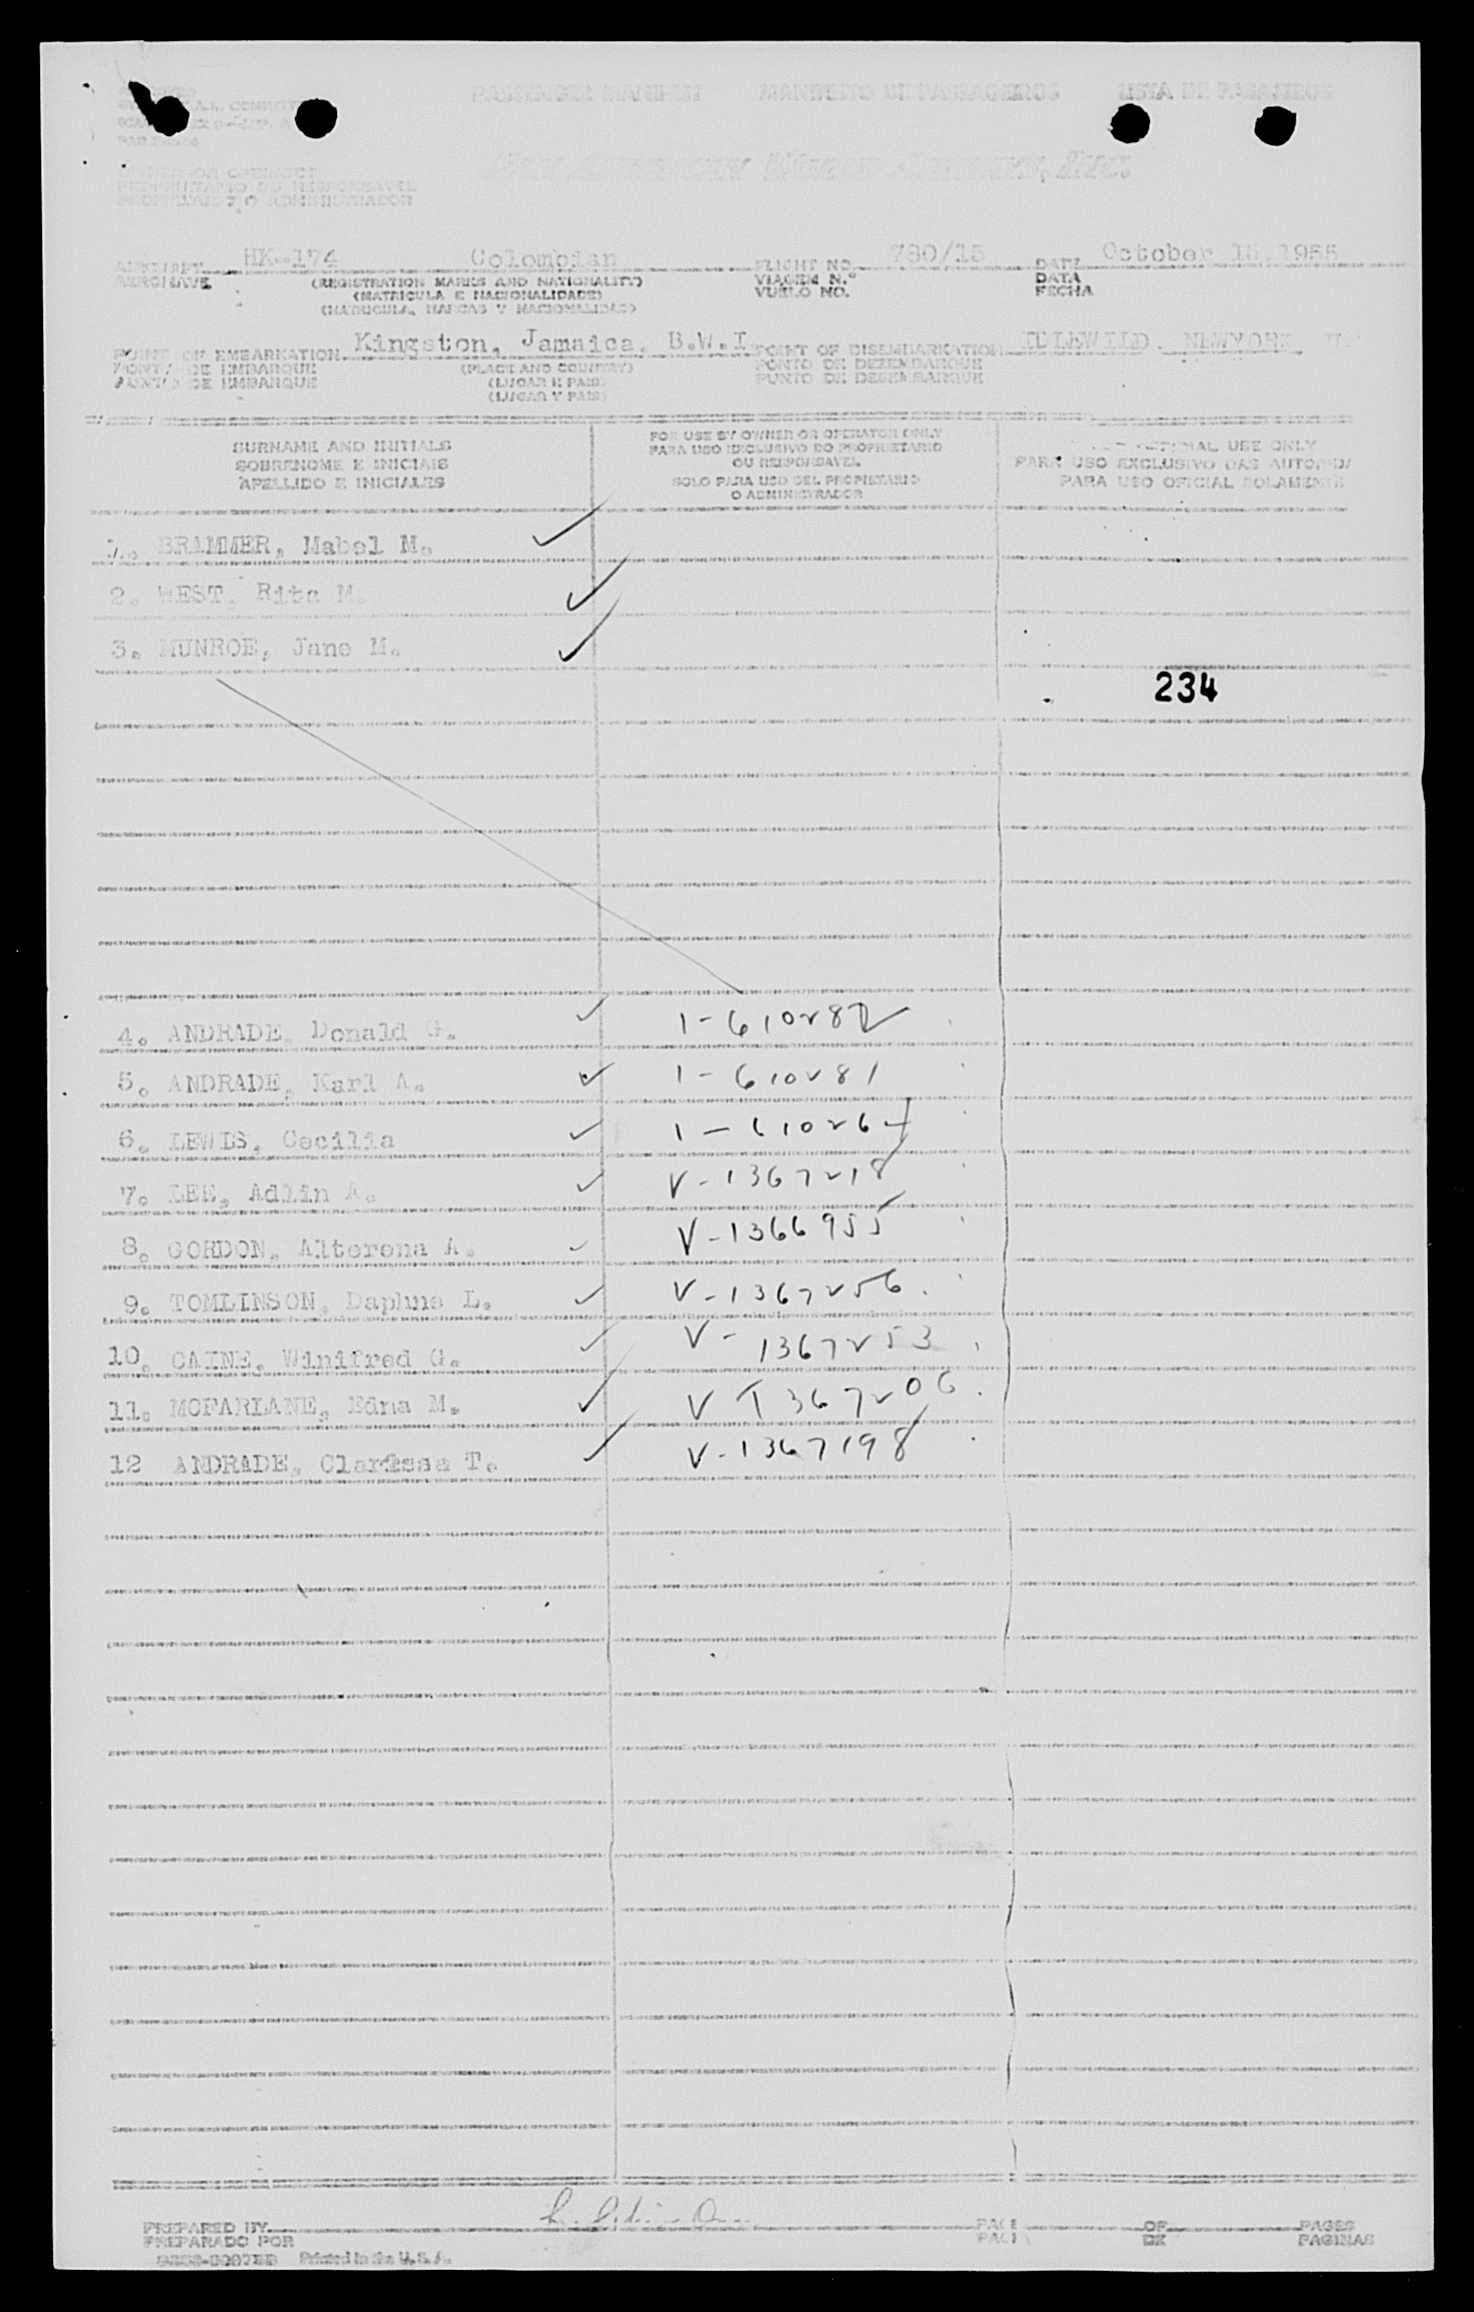 PASSENGER MANIFEST MANIFESTO DE PASSAGEIROS LISTA DE PASAJEROS
OWNER OR OPERATOR
PROPRIETARIO OU RESPONSAVEL
PROPIETARIO O ADMINISTRADOR
AIRCRAFT HK-174 Colombian FLIGHT NO. 780/15 DATE October 15, 1955
AERONAVE (REGISTRATION MARKS AND NATIONALITY) VIAGEM N.º DATA
(MATRICULA E NACIONALIDADE) VUELO NO. FECHA
(MATRICULA, MARCAS Y NACIONALIDAD)
POINT OF EMBARKATION Kingston, Jamaica, B.W.I. POINT OF DISEMBARKATION IDLEWILD. NEWYORK
PONTO DE EMBARQUE (PLACE AND COUNTRY) PONTO DE DEZEMBARQUE
PUNTO DE EMBARQUE (LUGAR E PAIS) PUNTO DE DESEMBARQUE
(LUGAR Y PAIS)
SURNAME AND INITIALS FOR USE BY OWNER OR OPERATOR ONLY OFFICIAL USE ONLY
SOBRENOME E INICIAIS PARA USO EXCLUSIVO DO PROPRIETARIO PARA USO EXCLUSIVO DAS
APELLIDO E INICIALES OU RESPONSAVEL PARA USO OFICIAL SOLAMENTE
SOLO PARA USO DEL PROPIETARIO
O ADMINISTRADOR
1. BRAMMER, Mabel M.
2. WEST, Rita M.
3. MUNROE, Jane M.
234
4. ANDRADE, Donald G. 1-610282
5. ANDRADE, Karl A. 1-610281
6. LEWIS, Cecilia
7. LEE, Adlin A. V-1367218
8. GORDON, Alterena A. V-1366955
9. TOMLINSON, Daphne L. V-1367256.
10. CAINE, Winifred G. V-1367253
11. MCFARLANE, Edna M. V-1367206.
12 ANDRADE, Clarissa T. V-1367198
PREPARED BY PAGE OF PAGES
PREPARADO POR DE PAGINAS
Printed in the U.S.A.